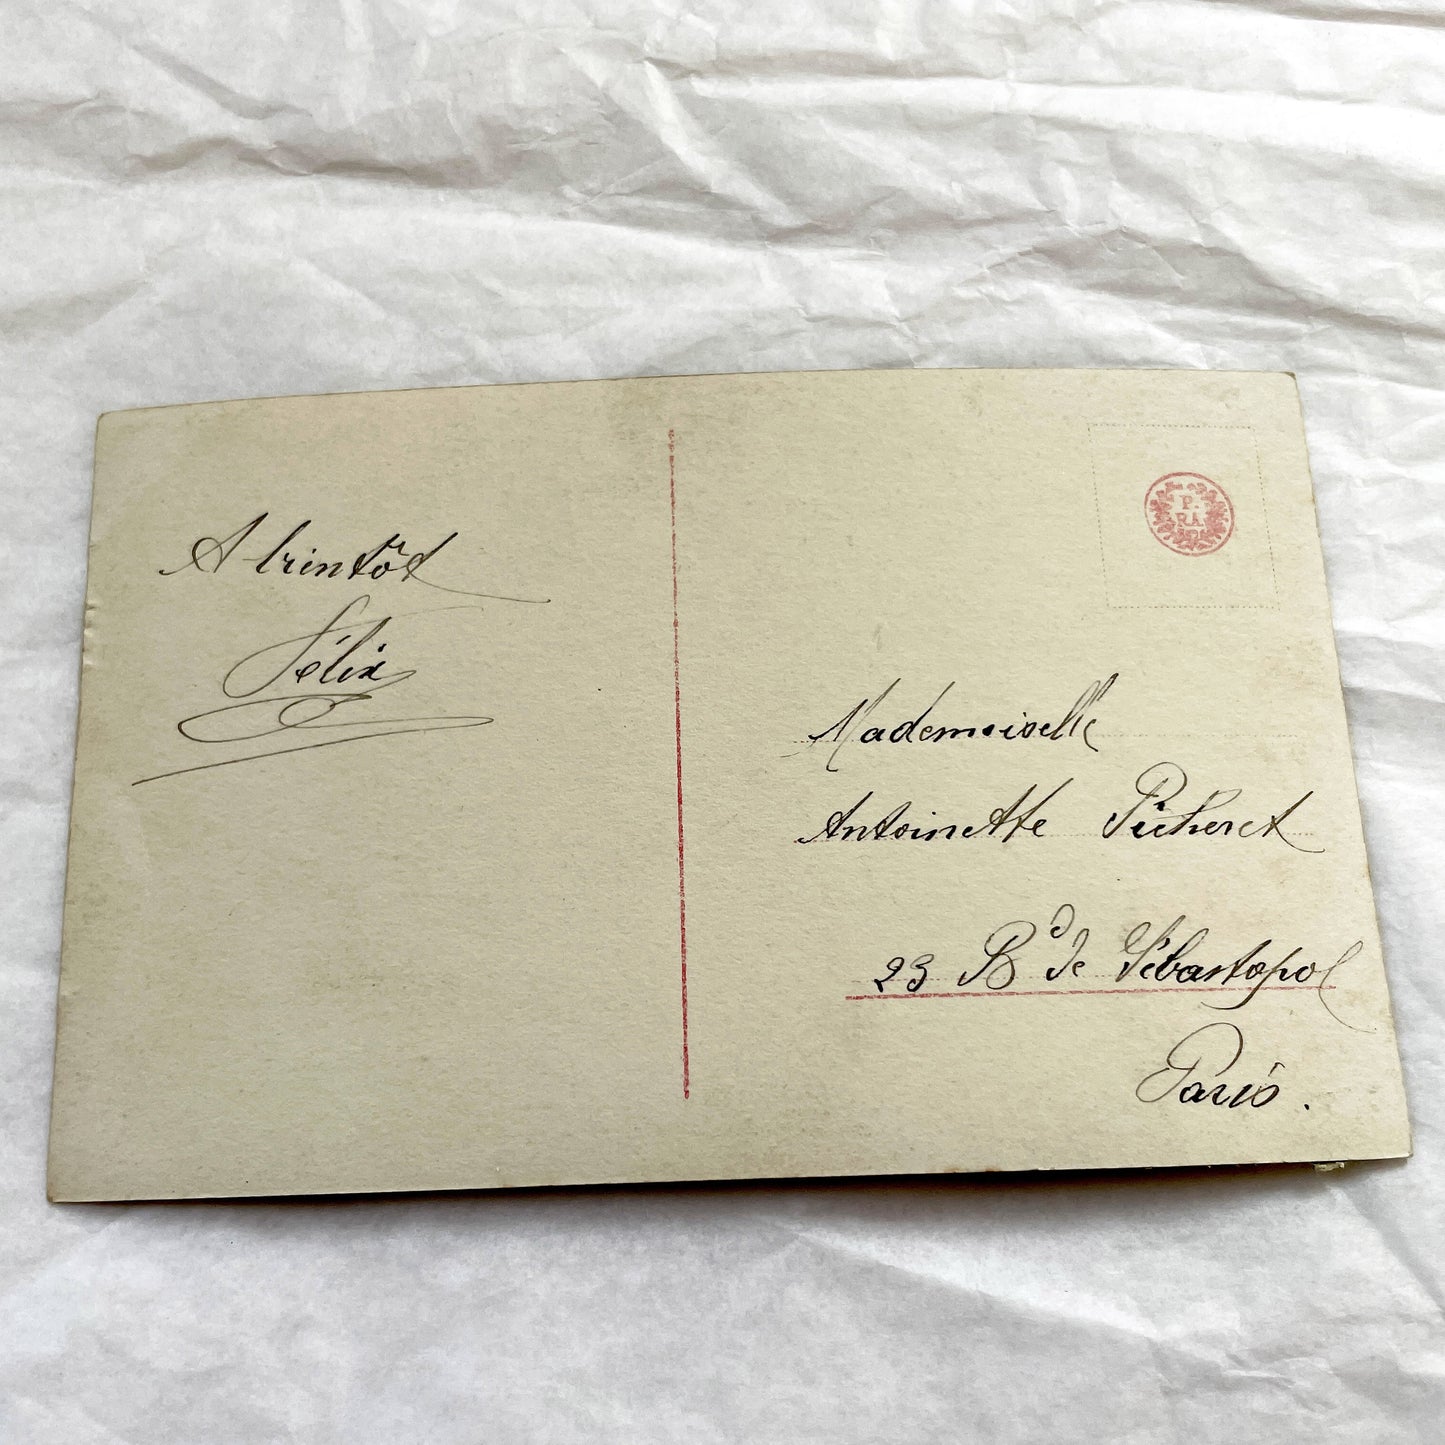 A bientôt
Félix
P.
RA.
Mademoiselle
Antoinette Picheret
23 Bd de Sébastopol
Paris.